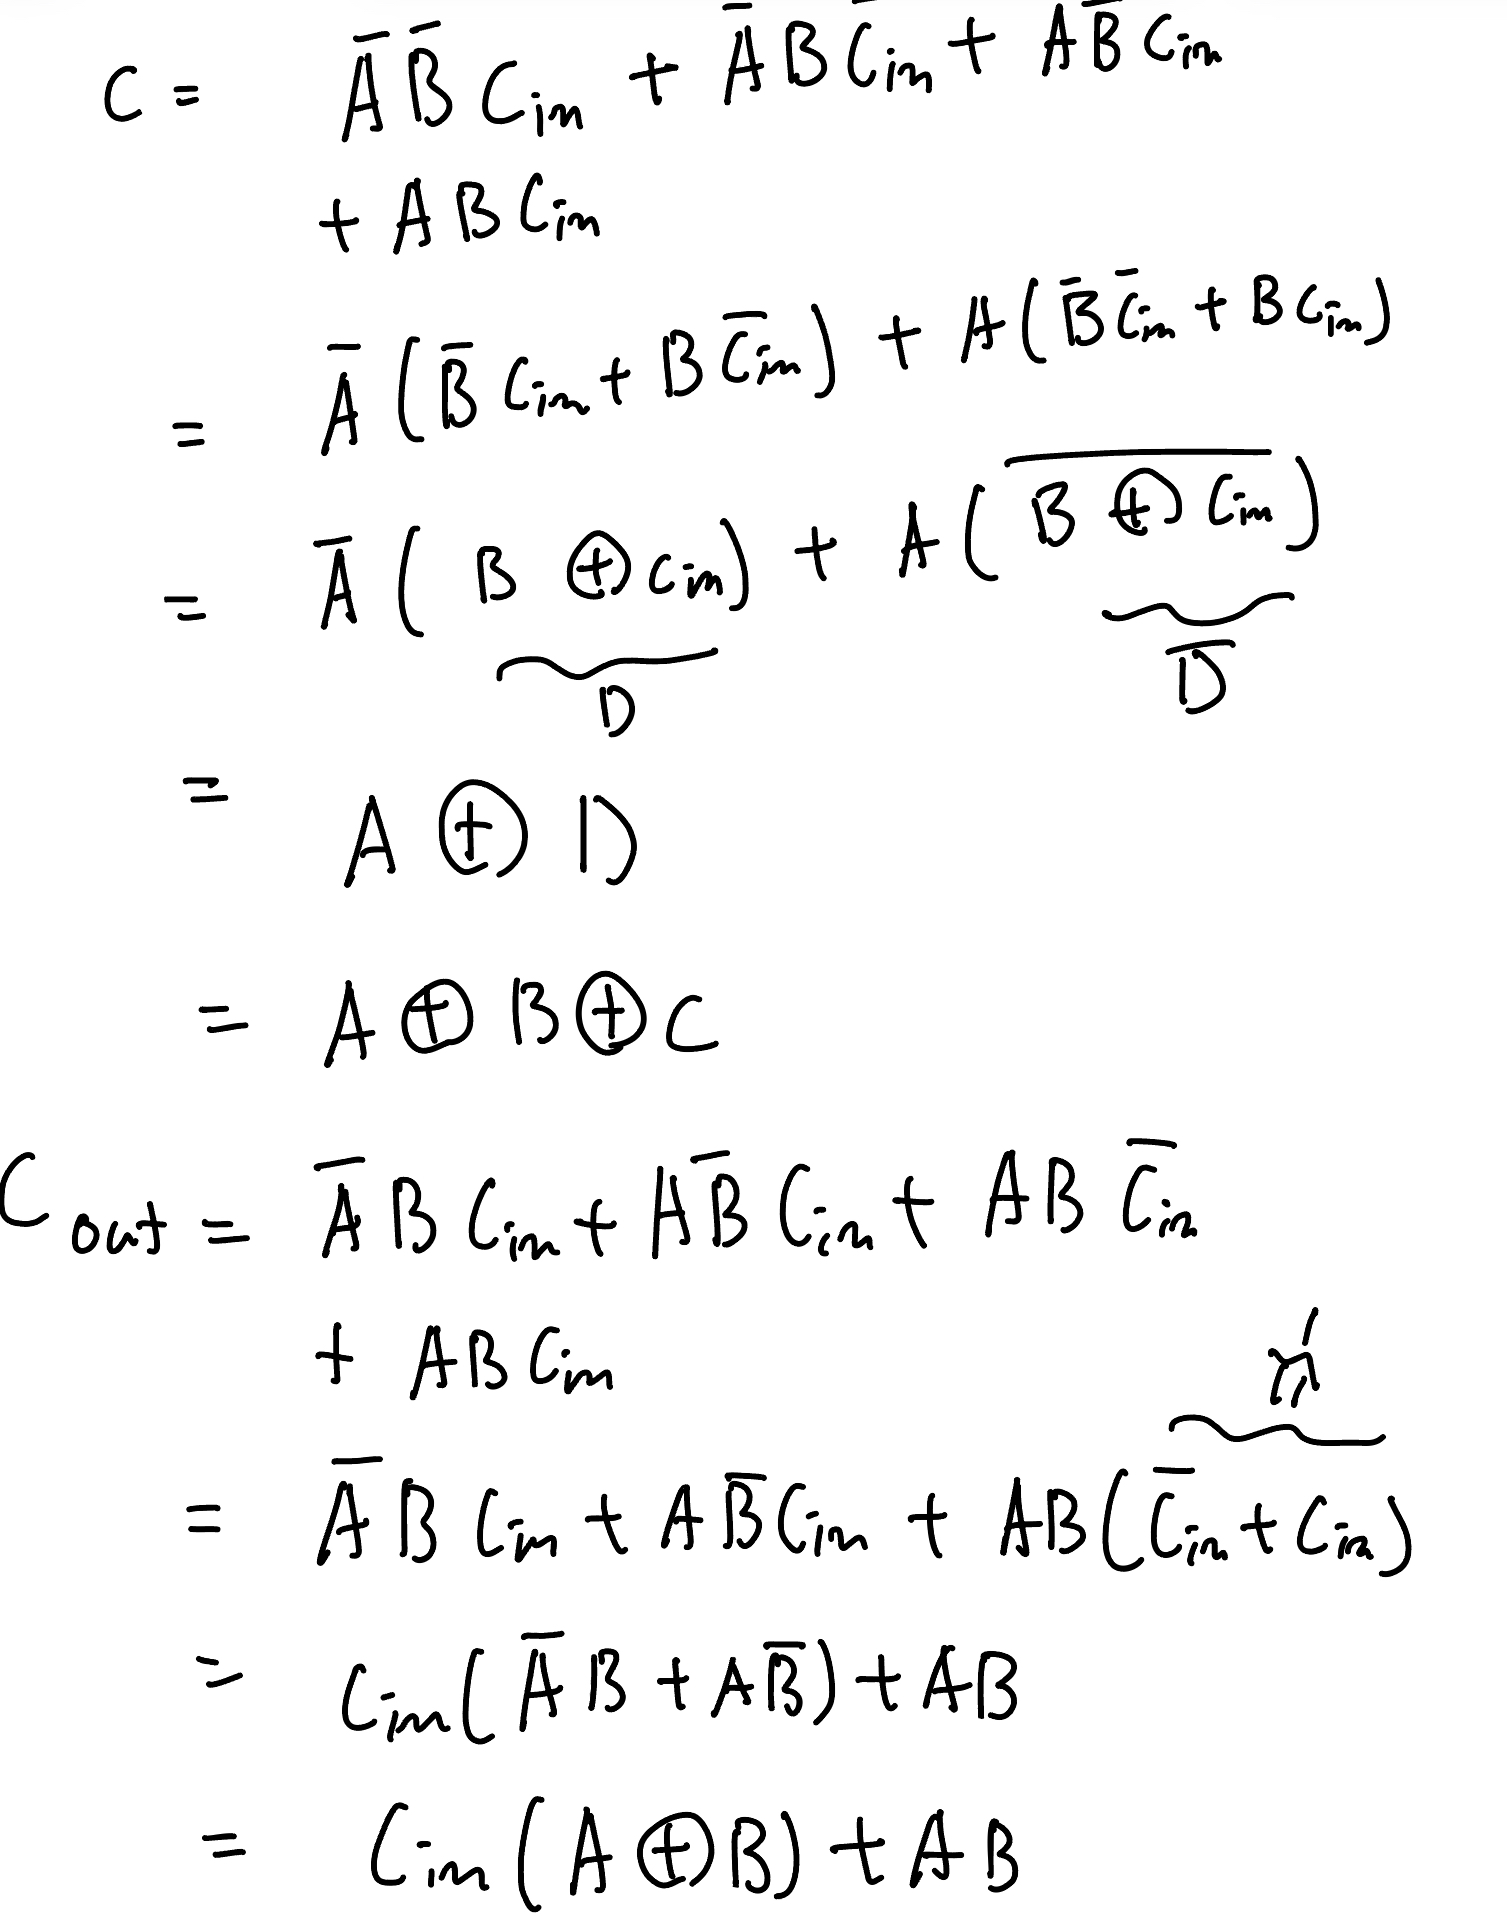 C = A̅ B̅ Cin + A̅ B C̅in + A B̅ Cin
+ A B Cin
= A̅ ( B̅ Cin + B C̅in ) + A ( B̅ C̅in + B Cin )
= A̅ ( B ⊕ Cin ) + A ( B̅ ⊕̅ C̅in )
D D̅
= A ⊕ D
= A ⊕ B ⊕ C
Cout = A̅ B Cin + A B̅ Cin + A B C̅in
+ A B Cin
= A̅ B Cin + A B̅ Cin + AB ( C̅in + Cin )
= Cin ( A̅ B + A B̅ ) + AB
= Cin ( A ⊕ B ) + AB